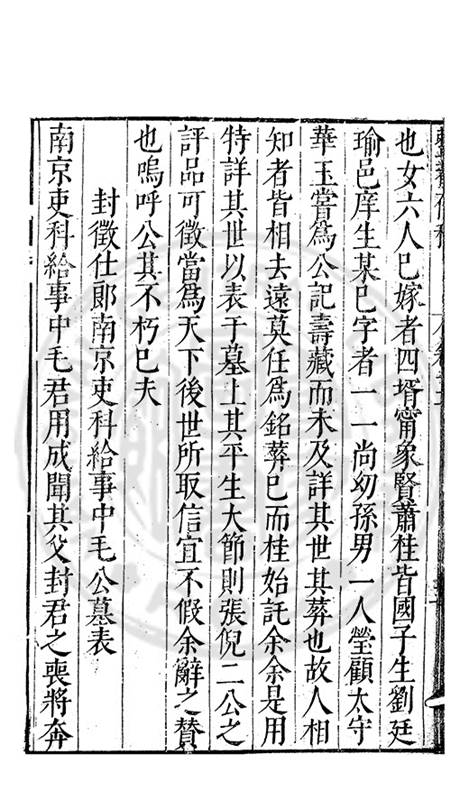 也女六人已嫁者四壻甯象賢蕭桂皆國子生劉廷
瑜邑庠生某已字者一一尚幼孫男一人瑩顧太守
華玉嘗爲公記壽藏而未及詳其世其葬也故人相
知者皆相去遠莫任爲銘葬已而桂始託余余是用
特詳其世以表于墓上其平生大節則張倪二公之
評品可徵當爲天下後世所取信宜不假余辭之賛
也嗚呼公其不朽已夫
封徵仕郎南京吏科給事中毛公墓表
南京吏科給事中毛君用成聞其父封君之喪將奔